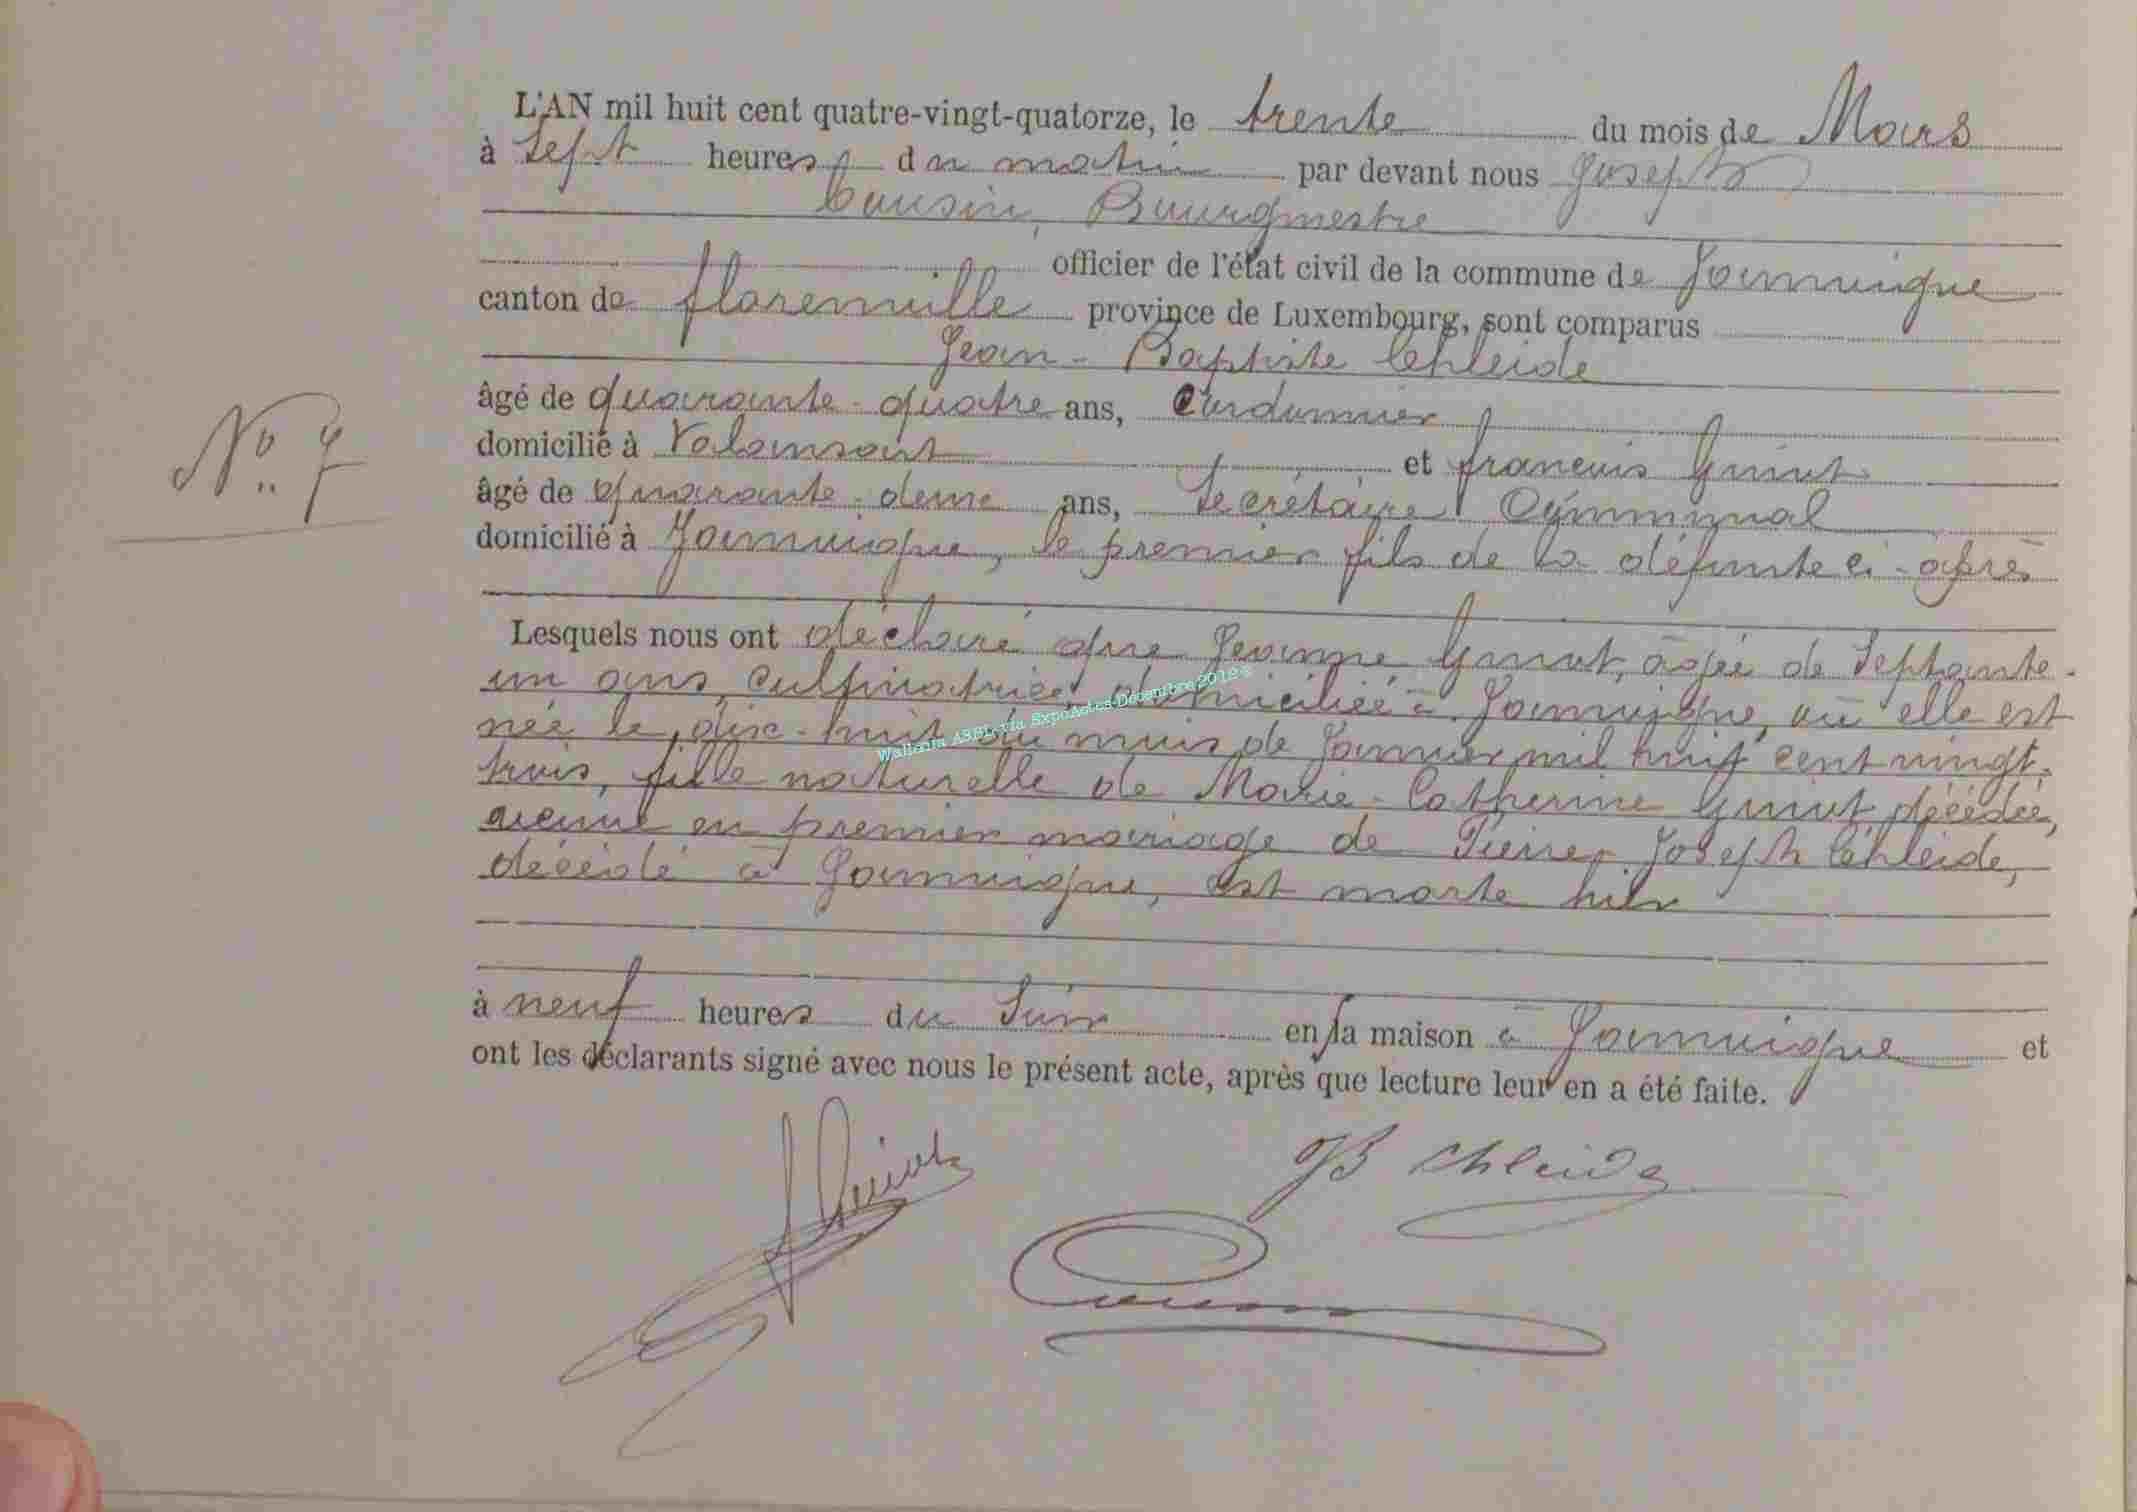 L'AN mil huit cent quatre-vingt-quatorze, le trente du mois de Mars
à Sept heures du matin par devant nous Joseph
Cousin, Bourgmestre
officier de l'état civil de la commune de Jamoigne
canton de florenville province de Luxembourg, sont comparus
Jean-Baptiste Schleide
âgé de quarante-quatre ans, Cordonnier
domicilié à Valansart et françois Guiot
âgé de quarante-deux ans, Secrétaire Communal
domicilié à Jamoigne, le premier fils de la défunte ci-après
N° 7
Lesquels nous ont déclaré que Jeanne Guiot, âgée de Septante-
un ans, Cultivatrice, domiciliée à Jamoigne, où elle est
née le dix-huit du mois de Janvier mil huit cent vingt-
trois, fille naturelle de Marie-Catherine Guiot, décédée,
veuve en premier mariage de Pierre-Joseph Schleide,
décédé à Jamoigne, est morte hier
à neuf heures du Soir en sa maison à Jamoigne et
ont les déclarants signé avec nous le présent acte, après que lecture leur en a été faite.
Wallonia ASBL via ExpoActes-Décembre2018
f Guiot
JB Schleide
Cousin